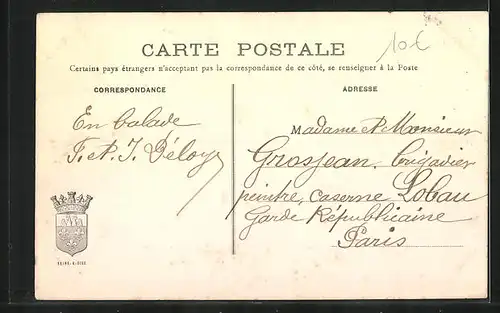 10€
CARTE POSTALE
Certains pays étrangers n'acceptant pas la correspondance de ce côté, se renseigner à la Poste
CORRESPONDANCE
En balade
F. et J. Déloye
ADRESSE
Madame et Monsieur
Grosjean, brigadier
peintre, caserne Lobau
Garde Républicaine
Paris